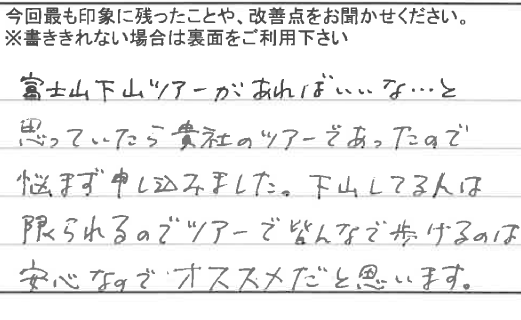 今回最も印象に残ったことや、改善点をお聞かせください。
※書ききれない場合は裏面をご利用下さい
富士山下山ツアーがあればいいな…と
思っていたら貴社のツアーであったので
悩まず申し込みました。下山してる人は
限られるのでツアーで皆んなで歩けるのは
安心なのでオススメだと思います。